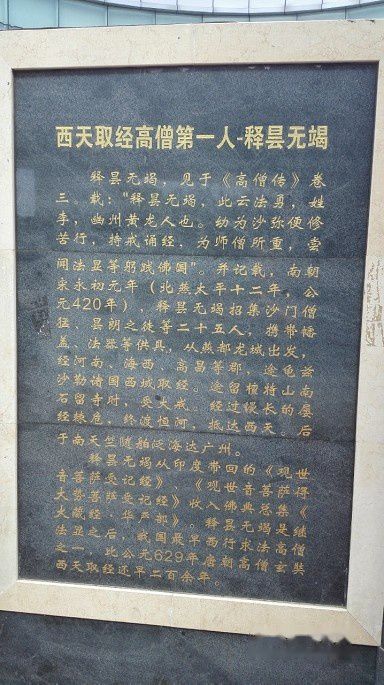 西天取经高僧第一人-释昙无竭
释昙无竭，见于《高僧传》卷
三。载："释昙无竭，此云法勇，姓
李，幽州黄龙人也。幼为沙弥便修
苦行，持戒诵经，为师僧所重，尝
闻法显等躬践佛国"。并记载，南朝
宋永初元年（北燕太平十二年，公
元420年），释昙无竭招集沙门僧
猛、昙朗之徒等二十五人，携带幡
盖、法器等供具，从燕都龙城出发，
经河南、海西、高昌等郡，途龟兹
沙勒诸国西域取经。途留檀特山南
石留寺时，受大戒。经过漫长的屡
经棘危，终渡恒河，抵达西天。后
于南天竺随舶泛海达广州。
释昙无竭从印度带回的《观世
音菩萨受记经》《观世音菩萨得
大势菩萨受记经》收入佛典总集《
大藏经·华严部》。释昙无竭是继
法显之后，我国最早西行求法高僧
之一，比公元629年唐朝高僧玄奘
西天取经还早二百余年。